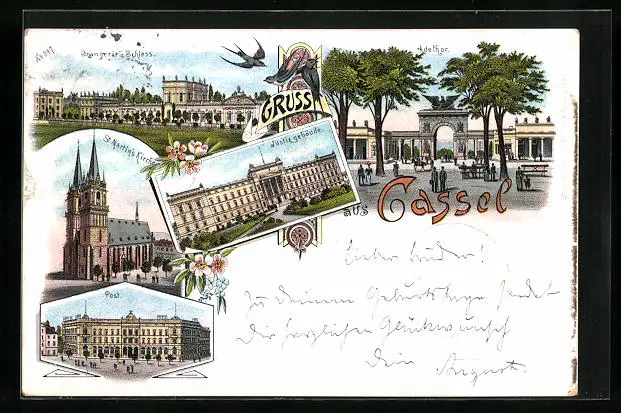 Orangerie u. Schloss.
Adethor.
GRUSS
St. Martin's Kirche
Justiz gebäude
aus
Cassel
Post.
Lieber Bruder!
Zu Deinem Geburtstage sendet
Dir herzlichen Glückwunsch
Dein August.